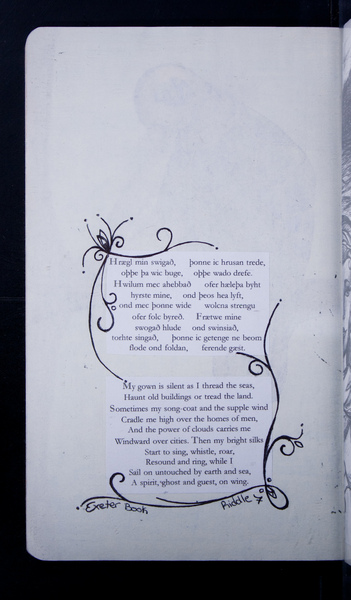 Hrægl min swigað, þonne ic hrusan trede,
oþþe þa wic buge, oþþe wado drefe.
Hwilum mec ahebbað ofer hæleþa byht
hyrste mine, ond þeos hea lyft,
ond mec þonne wide wolcna strengu
ofer folc byreð. Frætwe mine
swogað hlude ond swinsiað,
torhte singað, þonne ic getenge ne beom
flode ond foldan, ferende gæst.
My gown is silent as I thread the seas,
Haunt old buildings or tread the land.
Sometimes my song-coat and the supple wind
Cradle me high over the homes of men,
And the power of clouds carries me
Windward over cities. Then my bright silks
Start to sing, whistle, roar,
Resound and ring, while I
Sail on untouched by earth and sea,
A spirit, ghost and guest, on wing.
Exeter Book Riddle 7